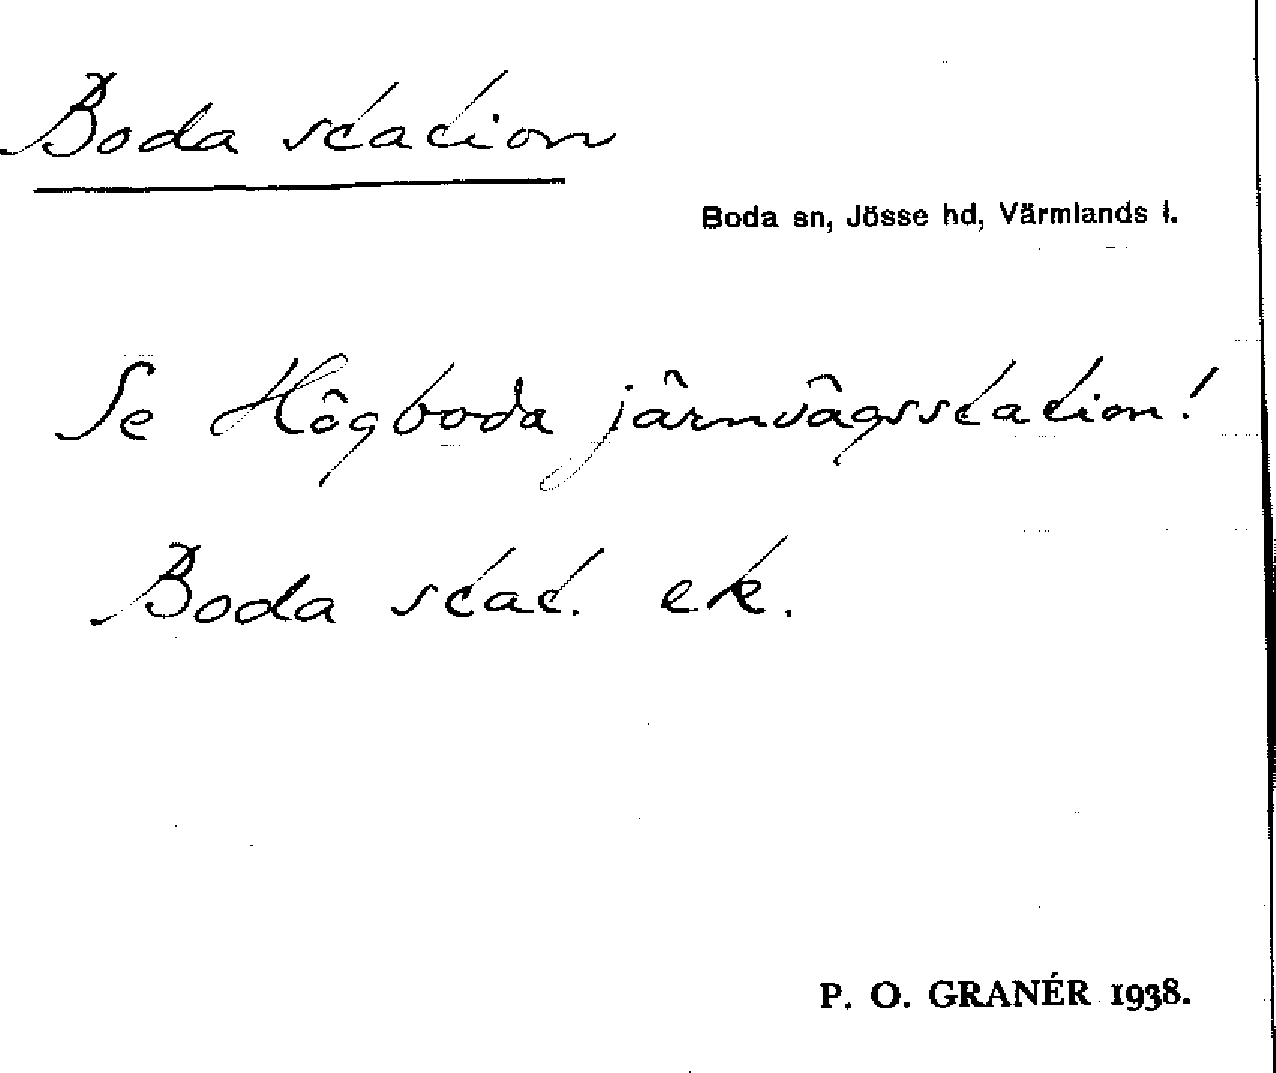 Boda station
Boda sn, Jösse hd, Värmlands l.
Se Högboda järnvägsstation!
Boda stat. ek.
P. O. GRANÉR 1938.